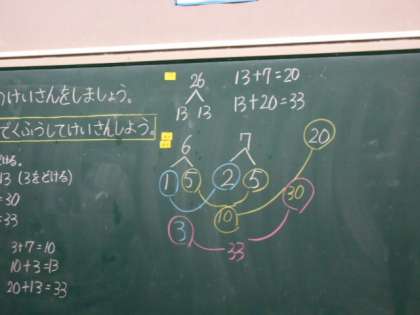 のけいさんをしましょう。
てくふうしてけいさんしよう。
13 (3をどける)
=30
=33
3+7=10
10+3=13
20+13=33
26
13 13
13+7=20
13+20=33
6 7 20
1 5 2 5 30
10
3 33